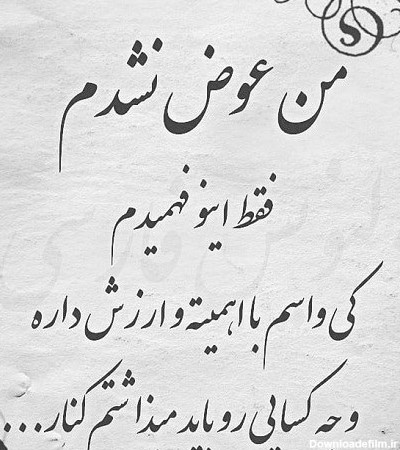 من عوض نشدم
فقط اینو فهمیدم
کی واسم با اهمیته و ارزش داره
و چه کسایی رو باید میذاشتم کنار...
Downloadefilm.ir